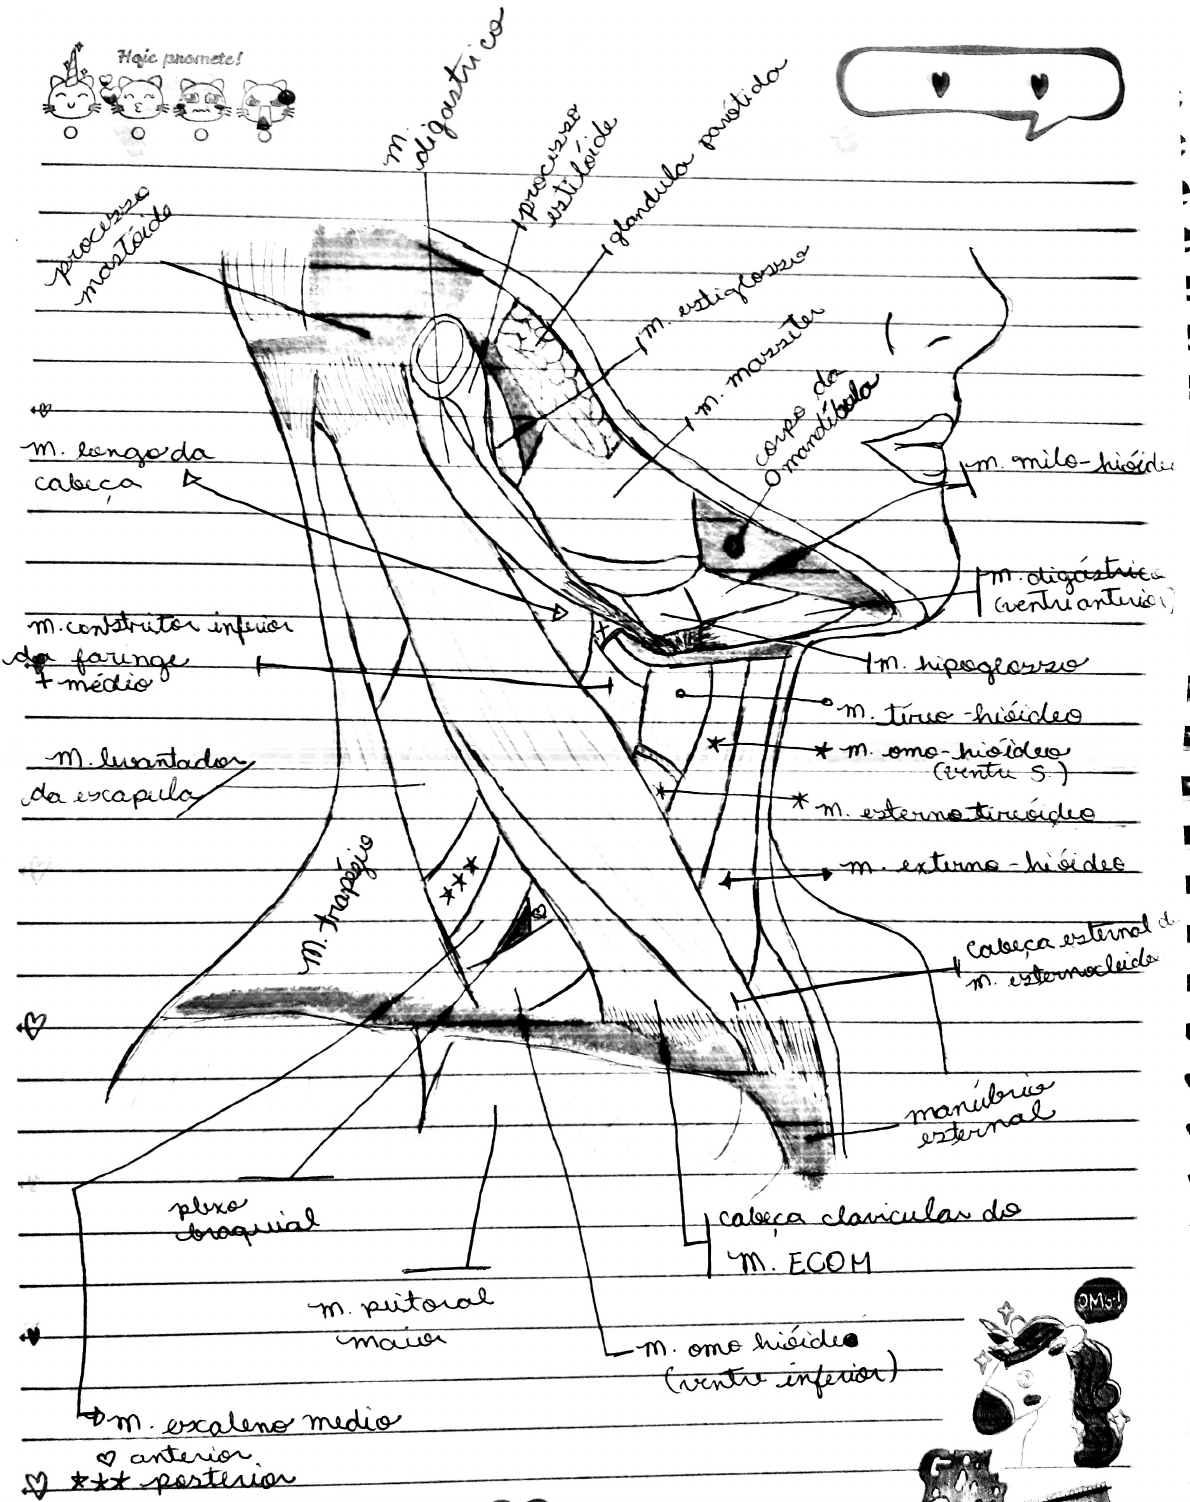 Hoje promete!
m. digastrico
processo estilóide
glandula parótida
processo mastóide
m. estiglosso
m. masseter
corpo da mandíbula
m. longo da
cabeça
m. milo-hióide
m. digástrico
(ventri anterior)
m. constritor inferior
da faringe
+ médio
m. hipoglosso
m. tireo-hióideo
m. omo-hióideo
(ventre S.)
m. levantador
da escapula
m. esternotireóideo
m. trapézio
***
m. externo-hióideo
cabeça esternal d
m. esternocleido
manúbrio
esternal
plexo
braquial
cabeça clavicular do
m. ECOM
m. peitoral
maior
m. omo hióideo
(ventre inferior)
OMG!
m. escaleno medio
♡ anterior
*** posterior